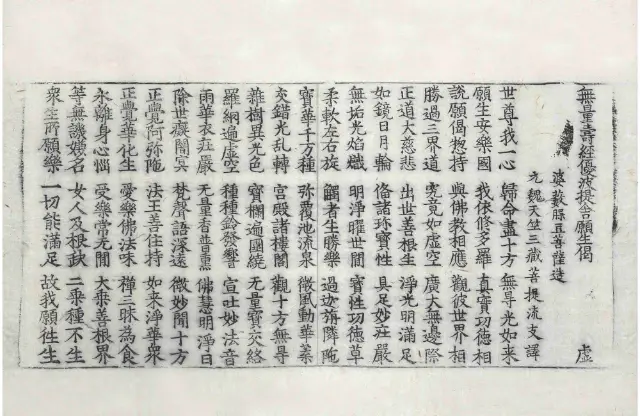 無量壽經優波提舍願生偈 虛
婆藪豆菩薩造
元魏天竺三藏菩提流支譯
世尊我一心 歸命盡十方 無㝵光如來
願生安樂國 我依修多羅 真實功德相
說願偈揔持 與佛教相應 觀彼世界相
勝過三界道 究竟如虛空 廣大無邊際
正道大慈悲 出世善根生 淨光明滿足
如鏡日月輪 俻諸珎寶性 具足妙莊嚴
無垢光焰熾 明淨曜世間 寶性功德草
柔軟左右旋 觸者生勝樂 過迦旃隣陁
寶華千万種 弥覆池流泉 微風動華葉
交錯光乱轉 宮殿諸樓閣 觀十方無㝵
雜樹異光色 寶欄遍圍繞 無量寶交絡
羅網遍虛空 種種鈴發響 宣吐妙法音
雨華衣莊嚴 無量香普熏 佛慧明淨日
除世癡闇冥 梵聲語深遠 微妙聞十方
正覺阿弥陁 法王善住持 如來淨華衆
正覺華化生 愛樂佛法味 禪三昧為食
永離身心惱 受樂常無閒 大乘善根界
等無譏嫌名 女人及根缺 二乘種不生
衆生所願樂 一切能滿足 故我願往生